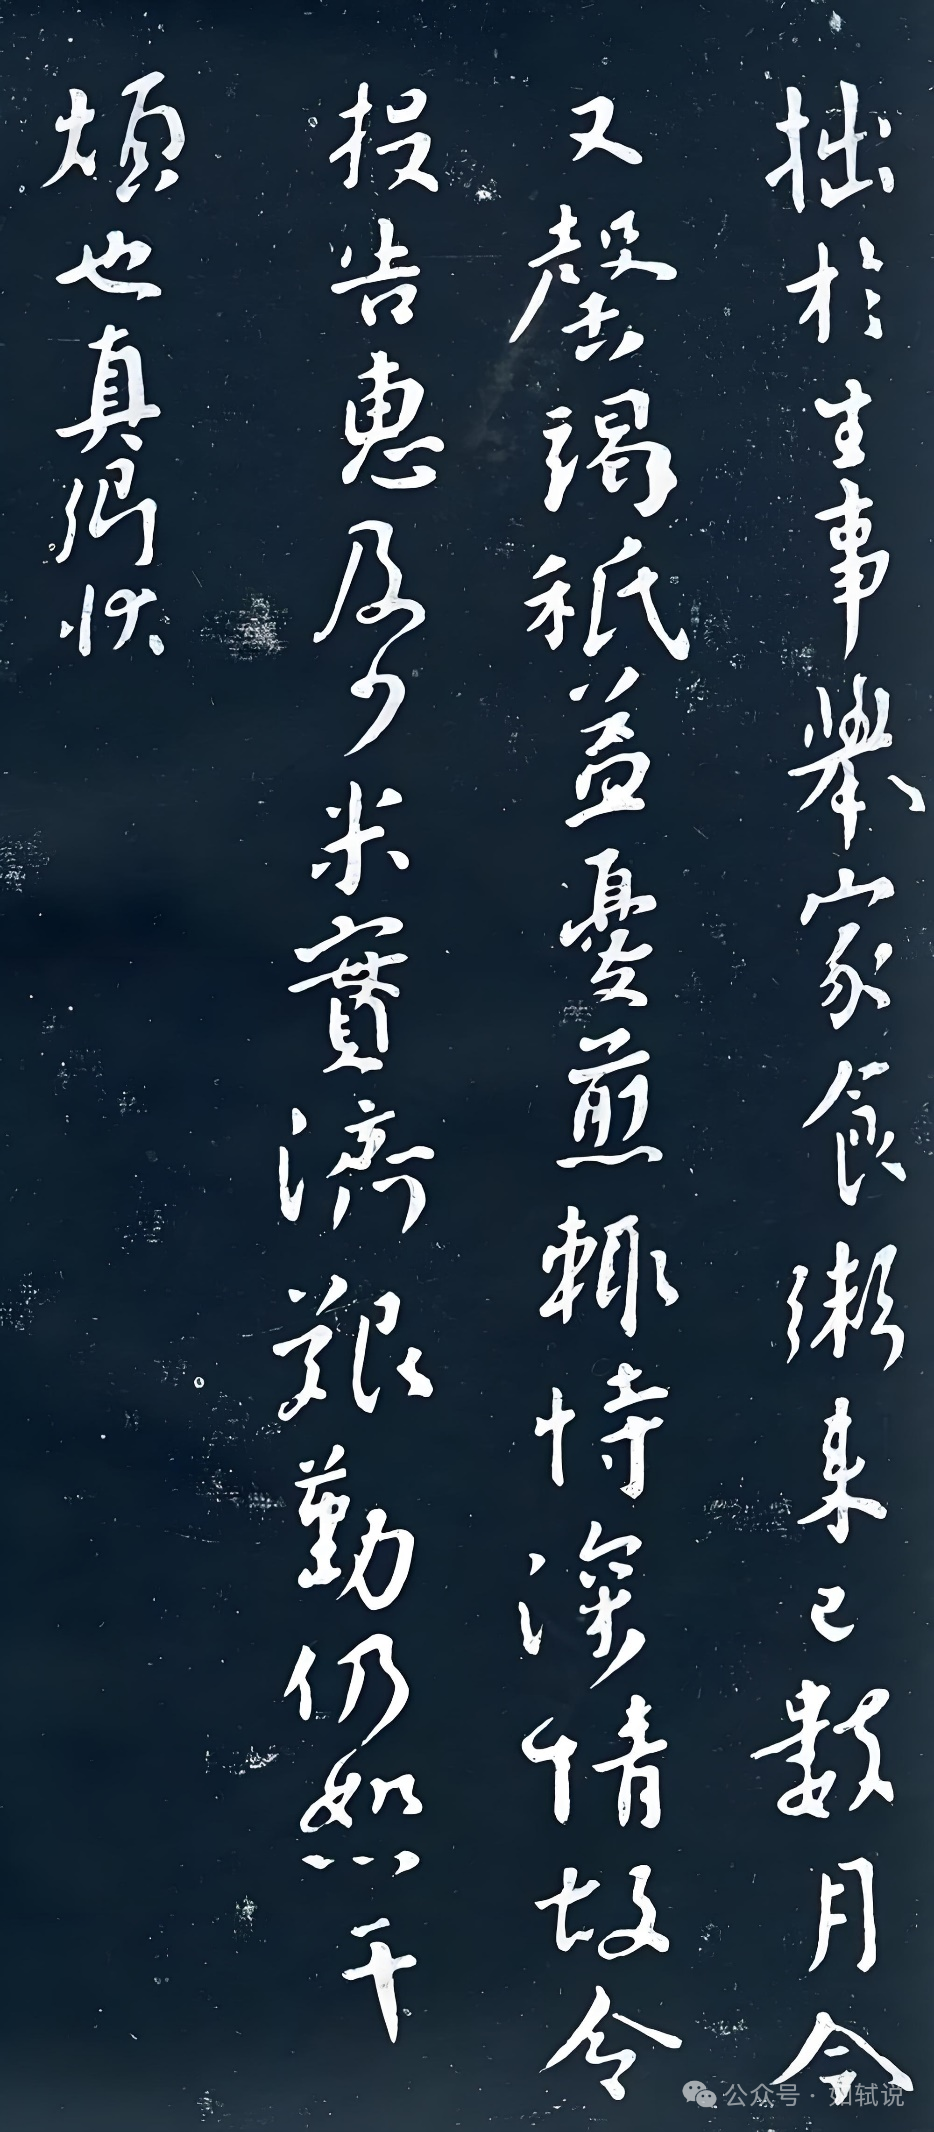 拙於生事舉家食粥來已數月今
又罄竭秪益憂煎輒恃深情故令
投告惠及少米實濟艱勤仍恕干
煩也真卿狀
公众号·如轼说